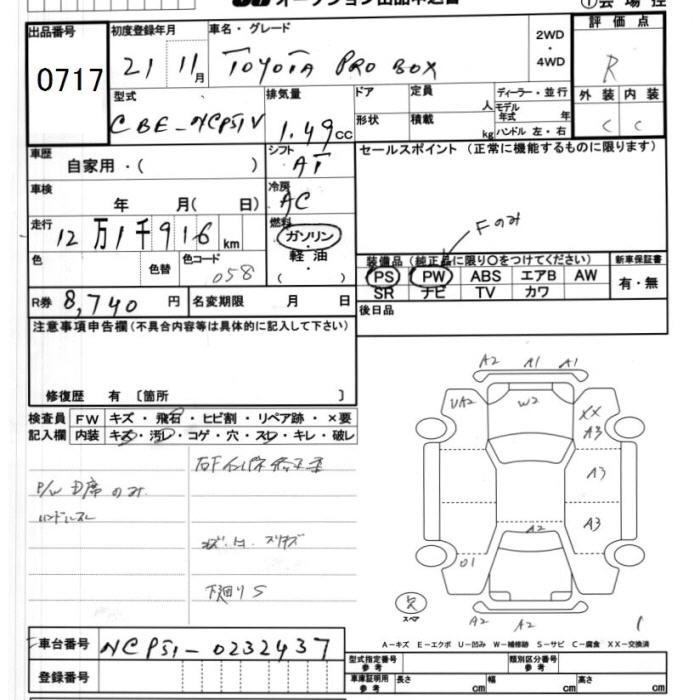 オークション出品申込書
出品番号
0717
初度登録年月
21 11月
車名・グレード
TOYOTA PROBOX
2WD
・
4WD
評価点
R
型式
CBE-NCP51V
排気量
1.49cc
ドア
形状
定員
人
積載
kg
ディーラー・並行
モデル
年式
年
ハンドル 左・右
外装
C
内装
C
車歴
自家用・( )
シフト
AT
セールスポイント (正常に機能するものに限ります)
車検
年 月( 日)
冷房
AC
走行
12万1千916km
燃料
ガソリン
・
軽油
( )
Fのみ
色
色替
色コード
058
装備品 (純正品に限り○をつけてください)
PS PW ABS エアB AW
SR ナビ TV カワ
新車保証書
有・無
R券 8,740 円
名変期限 月 日
後日品
注意事項申告欄(不具合内容等は具体的に記入して下さい)
修復歴 有 〔箇所 〕
検査員
記入欄
FW キズ・飛石・ヒビ割・リペア跡・×要
内装 キズ・汚レ・コゲ・穴・スレ・キレ・破レ
P/W D席のみ
ハンドルスレ
下廻りS
A2 A1 A1
UA2
W2
XX
A3
A3
A3
A2
01
A2
A2
欠
スペア
A-キズ E-エクボ U-凹み W-補修跡 S-サビ C-腐食 XX-交換済
車台番号
NCP51-0232437
登録番号
型式指定番号
参考
類別区分番号
参考
車庫証明用
参考
長さ cm
幅 cm
高さ cm